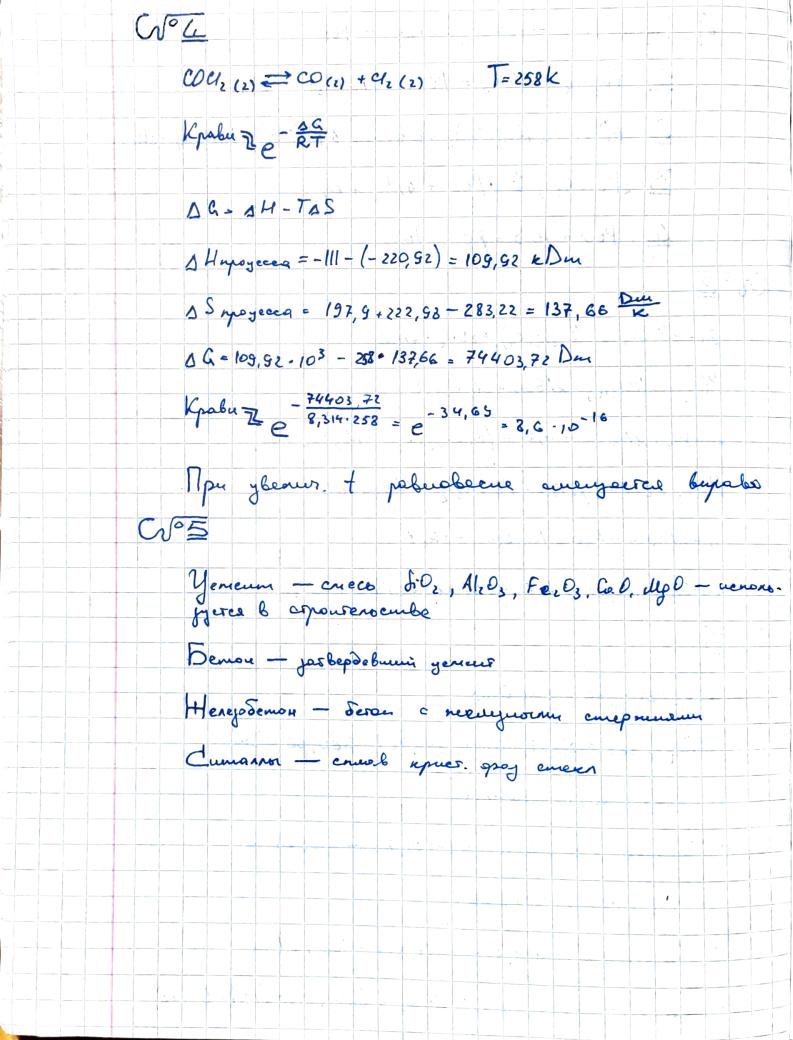 №4
COCl₂ (г) ⇄ CO (г) + Cl₂ (г) T = 258 K
Kравн = e^(-ΔG/RT)
ΔG = ΔH - TΔS
ΔH процесса = -111 - (-220,92) = 109,92 кДж
ΔS процесса = 197,9 + 222,98 - 283,22 = 137,66 Дж/К
ΔG = 109,92 · 10³ - 258 · 137,66 = 74403,72 Дж
Kравн = e^(-74403,72/8,314·258) = e^(-34,69) = 8,6 · 10⁻¹⁶
При увелич. t равновесие смещается вправо
№5
Цемент — смесь SiO₂, Al₂O₃, Fe₂O₃, CaO, MgO — исполь-
зуется в строительстве
Бетон — затвердевший цемент
Железобетон — бетон с железными стержнями
Ситаллы — сплав крист. фаз стекл